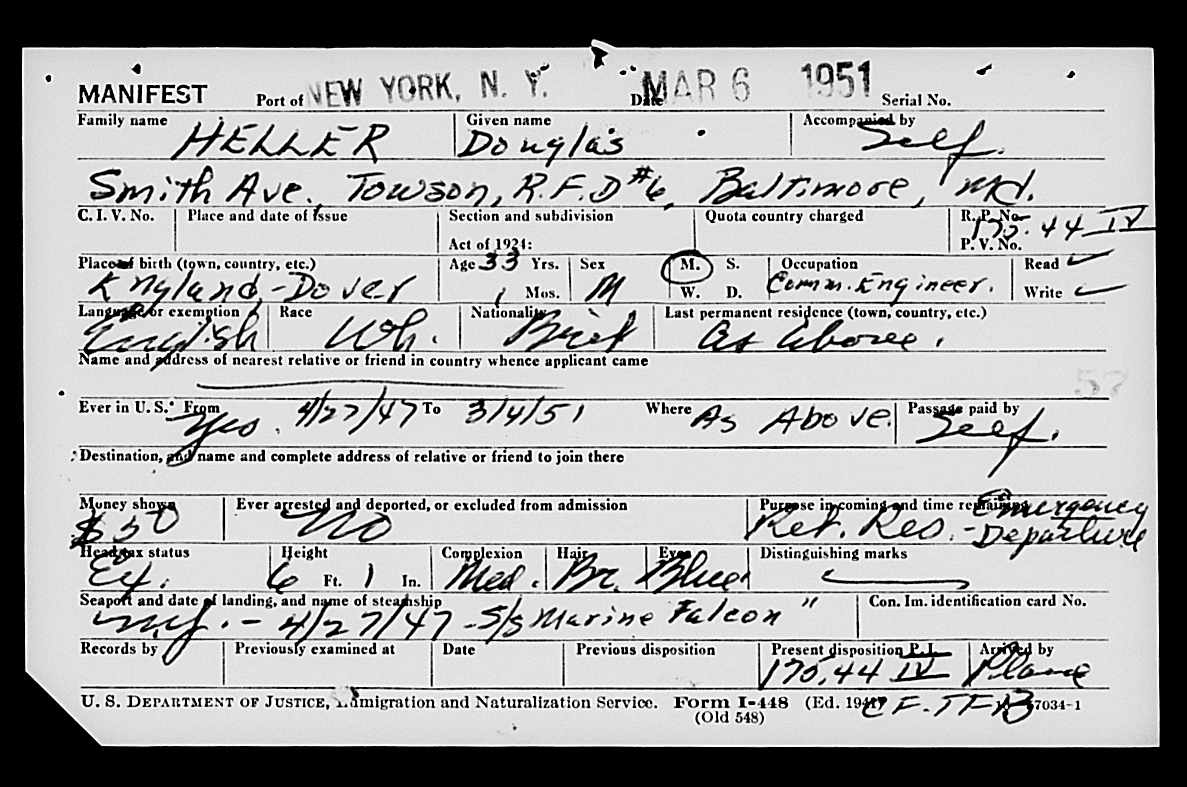 MANIFEST Port of NEW YORK, N. Y. Date MAR 6 1951 Serial No.
Family name HELLER Given name Douglas Accompanied by Self.
Smith Ave., Towson, R.F.D #6, Baltimore, Md.
C. I. V. No. Place and date of issue Section and subdivision Quota country charged R. P. No.
Act of 1924: P. V. No. 175.44 IV
Place of birth (town, country, etc.) Age 33 Yrs. Sex M. S. Occupation Read ✓
England,-Dover 1 Mos. M W. D. Comm. Engineer. Write ✓
Language or exemption Race Nationality Last permanent residence (town, country, etc.)
English Wh. Brit As Above.
Name and address of nearest relative or friend in country whence applicant came
52
Ever in U. S. From 4/27/47 To 3/4/51 Where As Above. Passage paid by
Yes. Self.
Destination, and name and complete address of relative or friend to join there
Money shown Ever arrested and deported, or excluded from admission Purpose in coming and time remaining
$50 NO Ret. Res. - Emergency Departure
Head tax status Height Complexion Hair Eyes Distinguishing marks
Ex. 6 Ft. 1 In. Med. Br. Blue
Seaport and date of landing, and name of steamship Con. Im. identification card No.
N.Y. - 4/27/47 - S/S Marine Falcon "
Records by Previously examined at Date Previous disposition Present disposition P.I. Arrived by
175.44 IV Plane
U. S. DEPARTMENT OF JUSTICE, Immigration and Naturalization Service. Form I-448 (Ed. 7034-1
(Old 548)